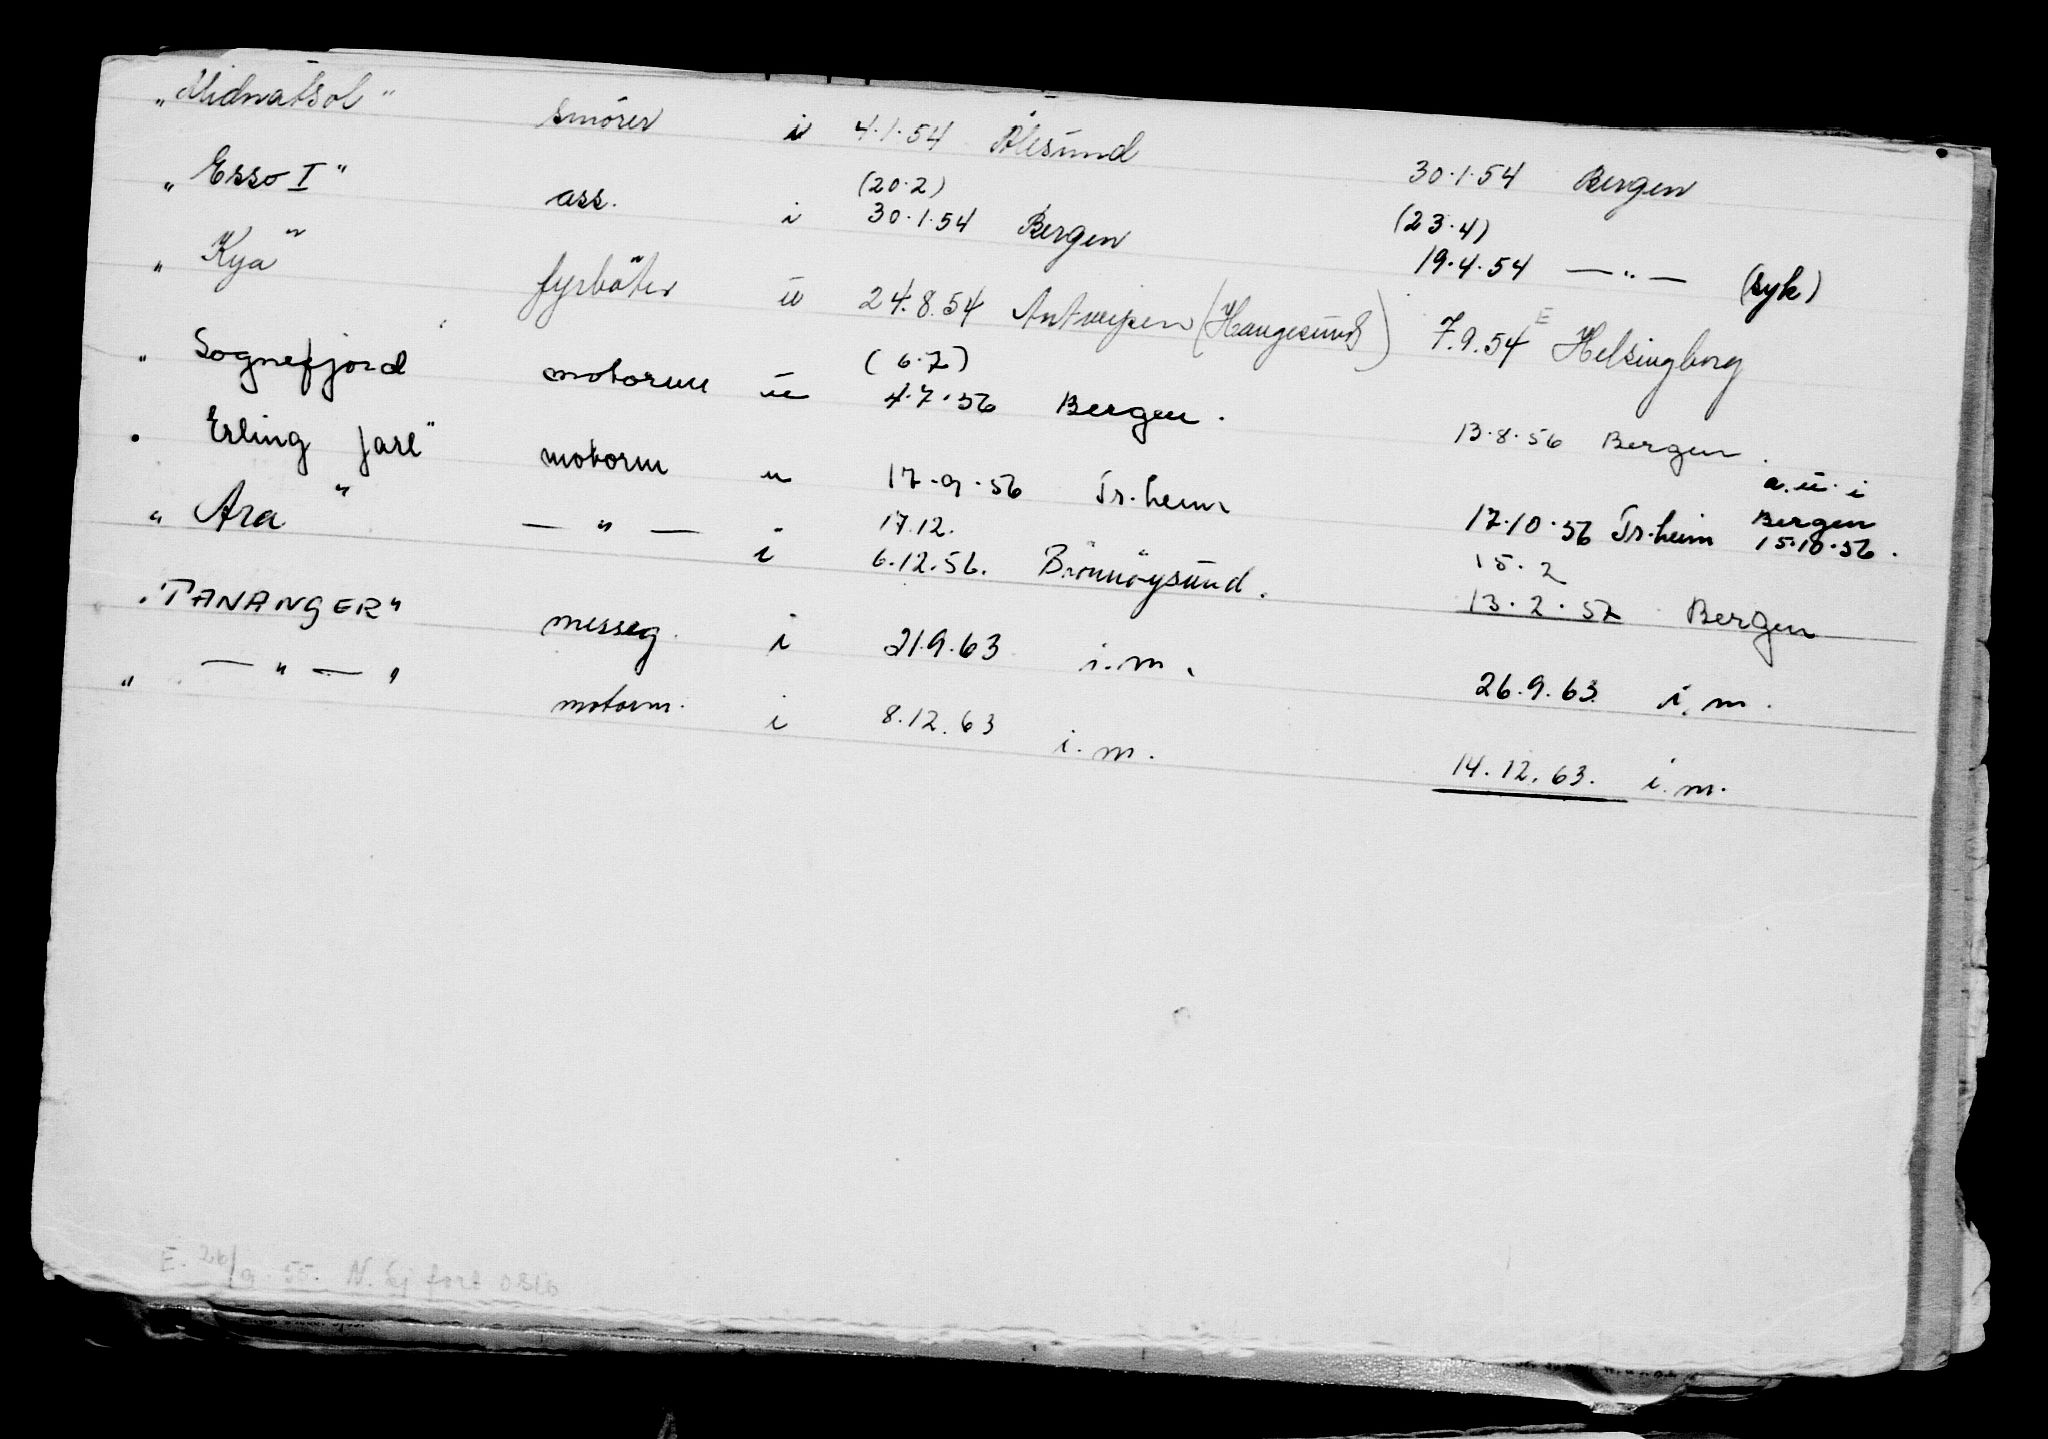 „Midnatsol" smörer i 4.1.54 Ålesund 30.1.54 Bergen
(20.2) (23.4)
„Esso I" ass. i 30.1.54 Bergen 19.4.54 —"— (syk)
„Kya" fyrböter u 24.8.54 Antwerpen (Haugesund) 7.9.54 E Helsingborg
(6.7)
„Sognefjord motorm u 4.7.56 Bergen. 13.8.56 Bergen.
a.u.i
„Erling Jarl" motorm u 17.9.56 Tr.heim 17.10.56 Tr.heim Bergen 15.10.56.
17.12. 15.2
„Ara" —"— i 6.12.56. Brönnöysund. 13.2.57 Bergen
„TANANGER" messeg. i 21.9.63 i.m. 26.9.63 i.m.
„—"—" motorm. i 8.12.63 i.m. 14.12.63. i.m.
E. 26/9 55. N. Sj fort Oslo